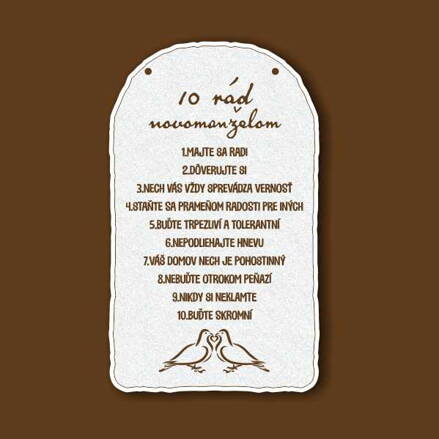 10 rád
novomanželom
1.MAJTE SA RADI
2.DÔVERUJTE SI
3.NECH VÁS VŽDY SPREVÁDZA VERNOSŤ
4.STAŇTE SA PRAMEŇOM RADOSTI PRE INÝCH
5.BUĎTE TRPEZLIVÍ A TOLERANTNÍ
6.NEPODLIEHAJTE HNEVU
7.VÁŠ DOMOV NECH JE POHOSTINNÝ
8.NEBUĎTE OTROKOM PEŇAZÍ
9.NIKDY SI NEKLAMTE
10.BUĎTE SKROMNÍ